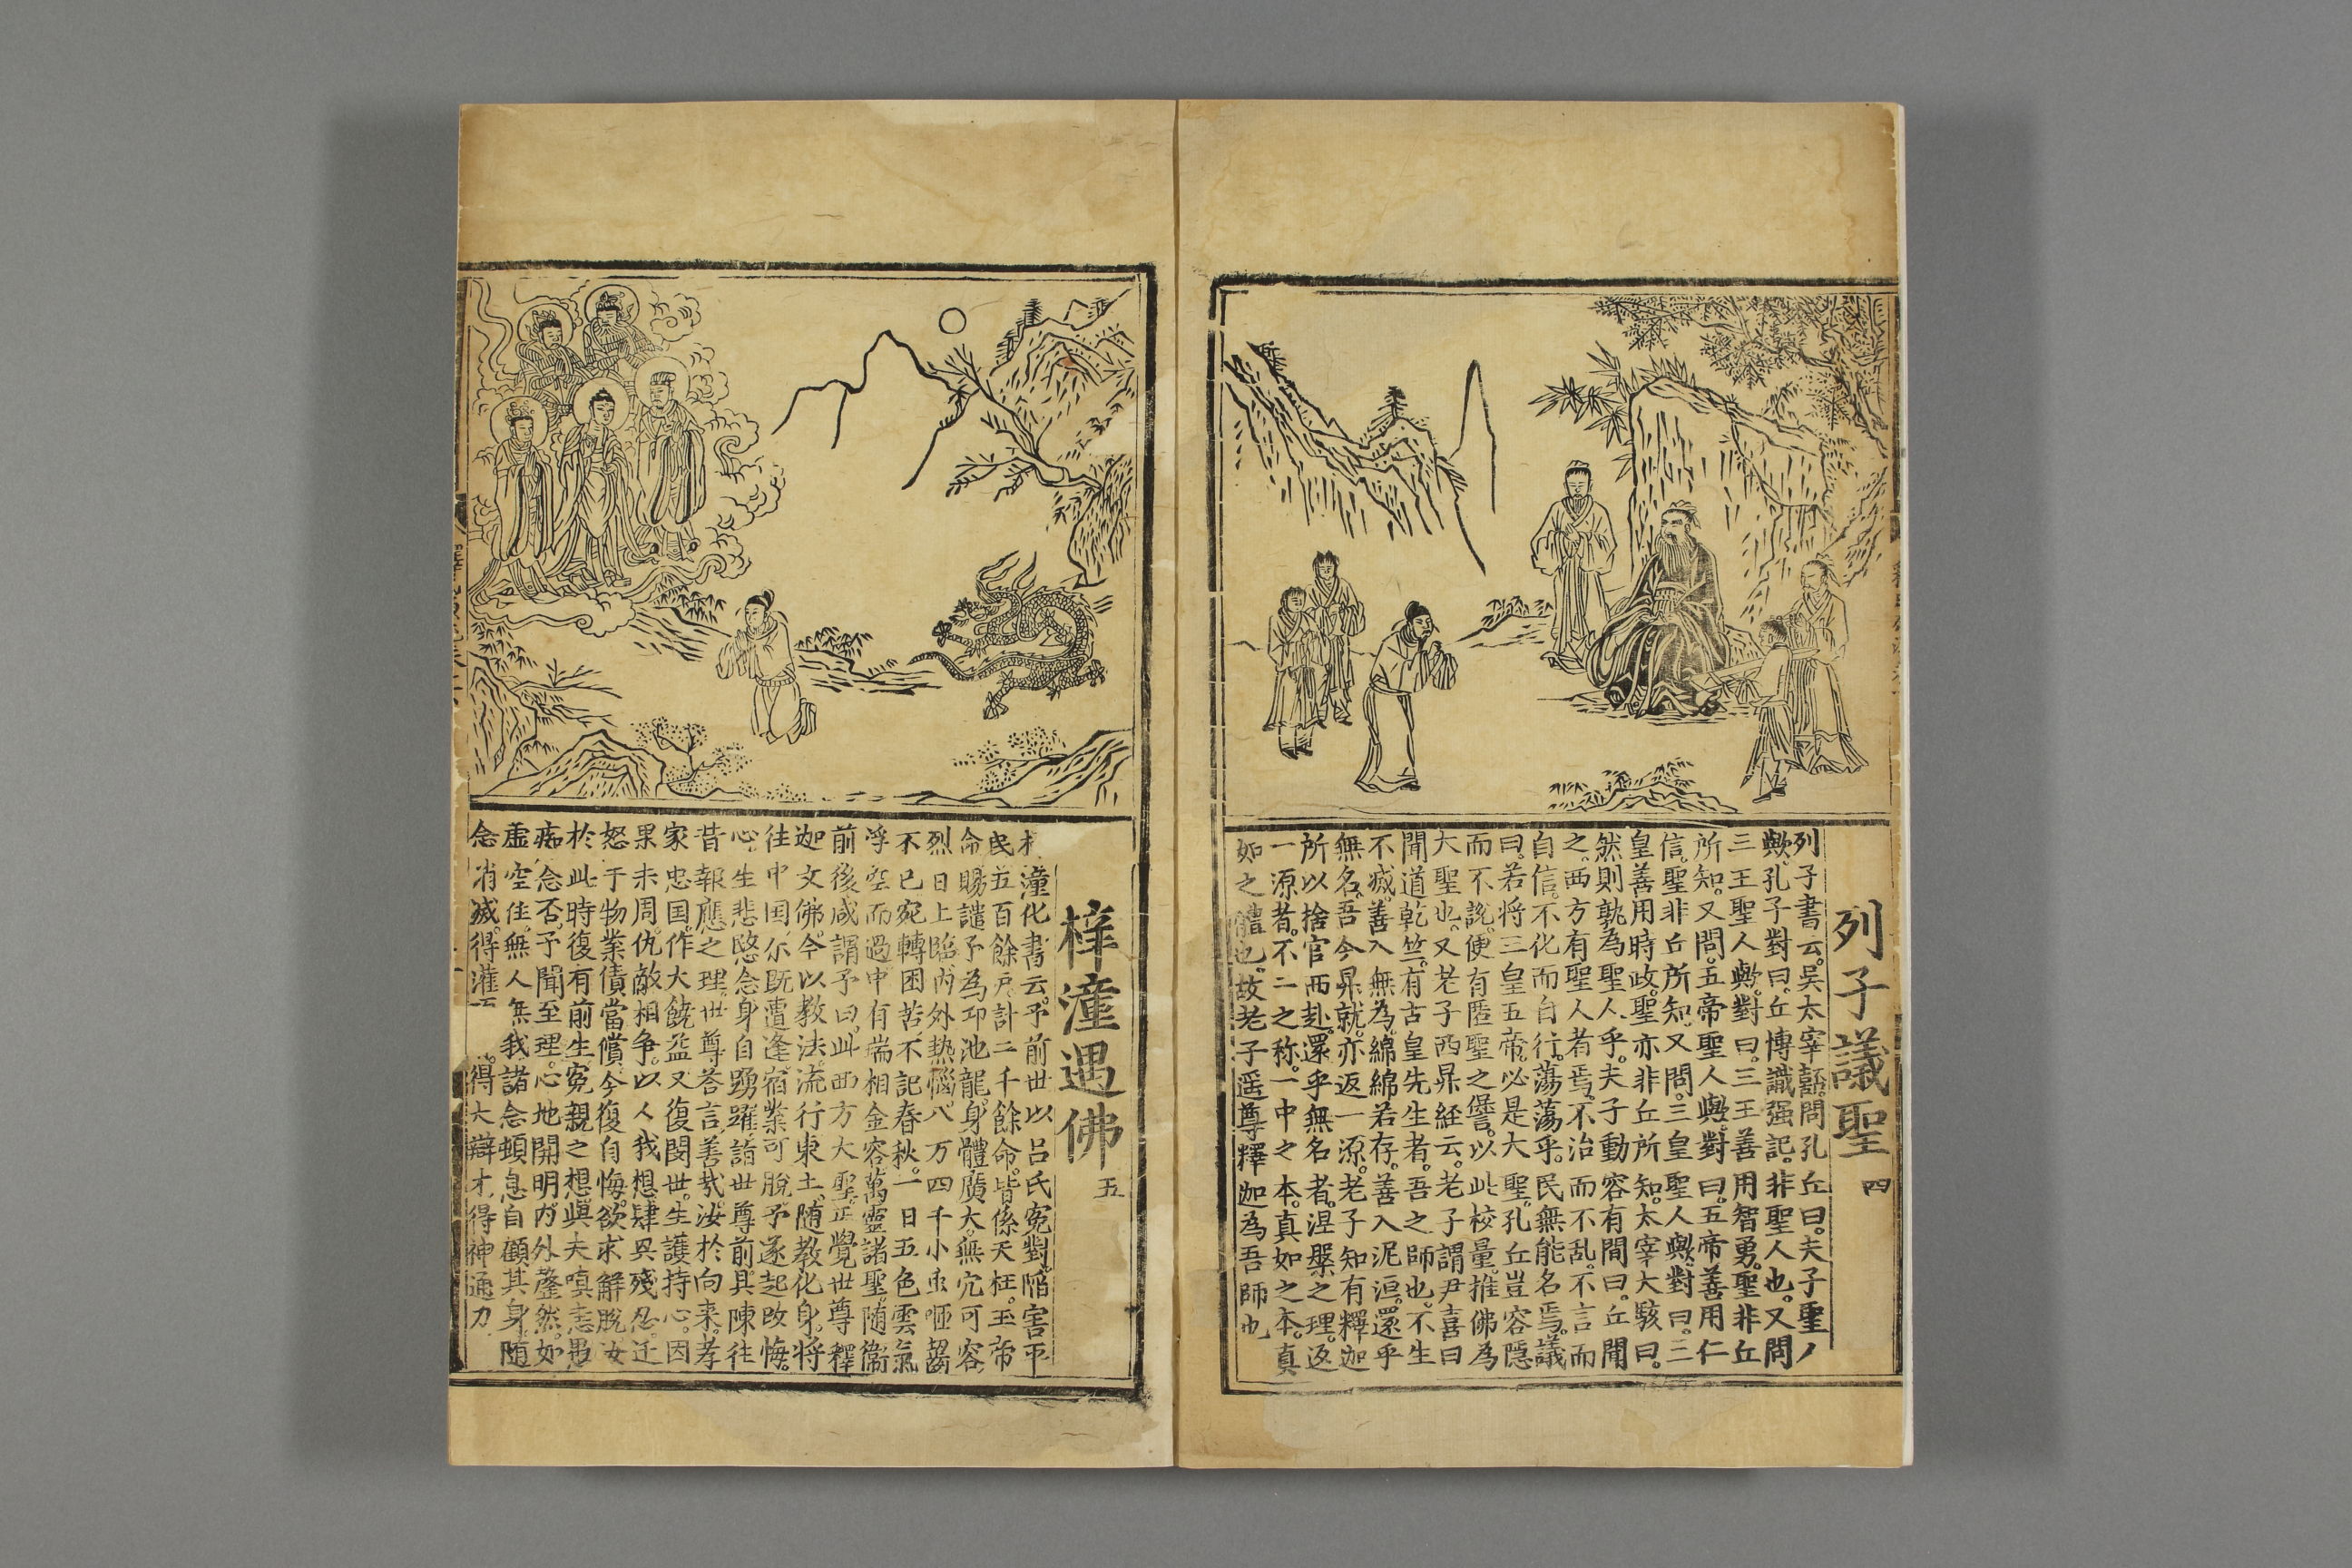 列子議聖 四
列子書云。吴太宰嚭。問孔丘曰。夫子聖人
歟。孔子對曰。丘博識强記。非聖人也。又問
三王聖人歟。對曰。三王善用智勇。聖非丘
所知。又問。五帝聖人歟。對曰。五帝善用仁
信。聖非丘所知。又問。三皇聖人歟。對曰。三
皇善用時政。聖亦非丘所知。太宰大駭曰。
然則孰為聖人乎。夫子動容有間曰。丘聞
之。西方有聖人者焉。不治而不乱。不言而
自信。不化而自行。蕩蕩乎。民無能名焉。議
曰。若将三皇五帝。必是大聖。孔丘豈容隱
而不說。便有匿聖之𠎝。以此校量。推佛為
大聖也。又老子西昇経云。老子謂尹喜曰
聞道乾竺。有古皇先生者。吾之師也。不生
不滅。善入無為。綿綿若存。善入泥洹。還乎
無名。吾今昇就。亦返一源。老子知有釋迦
所以捨官而赴。還乎無名者。涅槃之理。返
一源者。不二之称。一中之本。真如之本。真
如之體也。故老子遥尊釋迦為吾師也
梓潼遇佛 五
潼化書云。予前世以吕氏寃對。陷害平
民五百餘戶。計二千餘命。皆係天枉。玉帝
命賜譴予為邛池龍。身體廣大。無穴可容
烈日上臨。内外熱惱。八万四千小虫咂齧
不已。宛轉困苦。不記春秋。一日五色雲氣
浮空而過。中有端相金容。萬靈諸聖。随衛
前後。咸謂予曰。此西方大聖。正覺世尊釋
迦文佛。今以教法。流行東土。随教化身。将
往中国。尔既遭逢。宿業可脫。予遂起改悔。
心生悲慜。念身自踴躍。詣世尊前。具陳往
昔報應之理。世尊荅言。善㢤。汝於向来。孝
家忠国。作大饒益。又復閔世。生護持心。因
果未周。仇敵相争。以人我想。肆興殘忍。迁
怒于物。業債當償。今復自悔。欲求解脫。汝
於此時。復有前生寃親之想。與夫嗔恚愚
痴念否。予聞至理。心地開明。内外蓙然。如
虚空住。無人無我。諸念頓息。自顧其身。随
念消滅。得灌 。得大辯才。得神通力